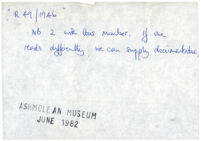 "R 49 / 1946"
NB 2 with this number. If one
reads differently, we can supply documentation
ASHMOLEAN MUSEUM
JUNE 1982